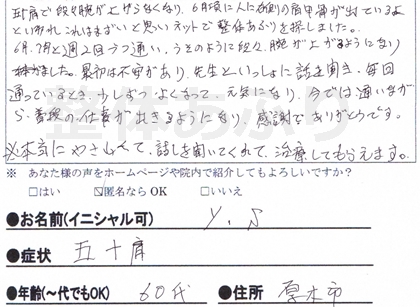 五十肩で段々腕が上がらなくなり、6月頃に人に右側の肩甲骨が出ているよ
といわれこれはまずいと思いネットで整体あぷりを探しました。
6月、7月と週2回ずつ通い、うそのように段々、腕が上がるようになり
ました。最初は不安があり、先生といっしょに話を聞き、毎回
通っているとき、少しずつよくなって、元気になり、今では通いなが
ら、看護の仕事が出きるようになり、感謝でありがとうです。
※本当にやさしくて、話しを聞いてくれて、治療してもらえます。
※ あなた様の声をホームページや院内で紹介してもよろしいですか?
□はい ☑匿名なら OK □いいえ
●お名前(イニシャル可) Y.S
●症状 五十肩
●年齢(~代でもOK) 60代 ●住所 厚木市